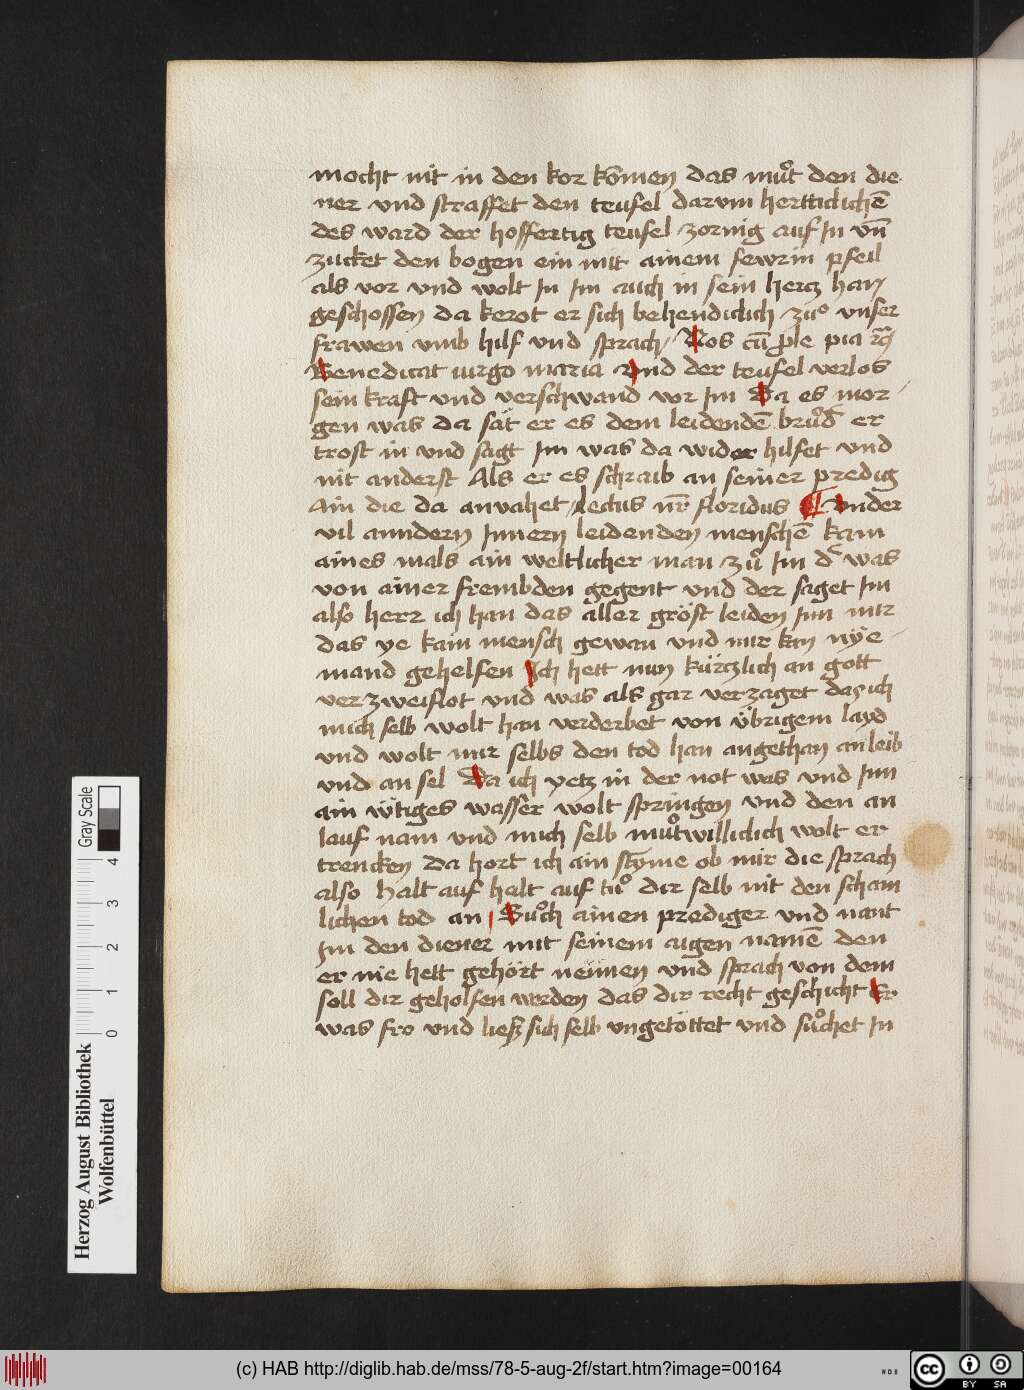 mocht nit in den kor kōmen das muͦt den die
ner vnd straffet den teufel darvm herttiklichē
des ward der hoffertig teufel zornig auf In vn̄
zucket den bogen ein mit ainem fewrin pfeil
als vor vnd wolt In Im auch in sein hertz han
geschossen da kerot er sich behendiclich zuͦ vnser
frawen vmb hilf vnd sprach / Nos cū ple pia
Benedicat uirgo maria Vnd der teufel verlos
sein kraft vnd verschwand vor Im Da es mor
gen was da sät er es dem leidendē bruͦd er
trost in vnd sagt Im was da wider hilfet vnd
nit anderst Als er es schraib an seiner predig
Ain die da anvahet / lectus nr̄ floridus ¶ Vnder
vil anndern Innern leidenden menschē kam
aines mals ain weltlicher man zuͦ Im d was
von ainer frembden gegent vnd der saget Im
also herr ich han das aller gröst leiden Inn mir
das ye kain mensch gewan vnd mir kan nye
mand gehelfen Ich hett nun kürtzlich an gott
verzweiflot vnd was als gar verzaget das ich
mich selb wolt han verderbet von übrigem layd
vnd wolt mir selbs den tod han angethan an leib
vnd an sel Da ich yetz in der not was vnd Inn
ain wtiges wasser wolt springen vnd den an
lauf nam vnd mich selb muͦtwillicklich wolt er
trencken Da hort ich ain styme ob mir die sprach
also halt auf halt auf tuͦ dir selb nit den scham
lichen tod an / Suͦch ainen prediger vnd nant
Im den diener mit seinem aigen namē den
er nie hett gehört nemen vnd sprach von dem
soll dir geholfen werden das dir recht geschicht Er
was fro vnd ließ sich selb vngetöttet vnd suͦchet In
Gray Scale
4
3
2
1
0
Herzog August Bibliothek
Wolfenbüttel
(c) HAB http://diglib.hab.de/mss/78-5-aug-2f/start.htm?image=00164
WDB
cc
BY SA